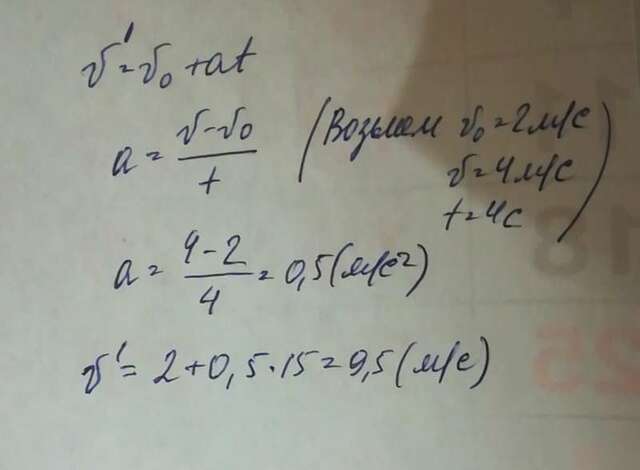 v' = v₀ + at
a = (v - v₀)/t (Возьмем v₀ = 2 м/с
v = 4 м/с
t = 4с)
a = (4 - 2)/4 = 0,5 (м/с²)
v' = 2 + 0,5 · 15 = 9,5 (м/с)
18
25